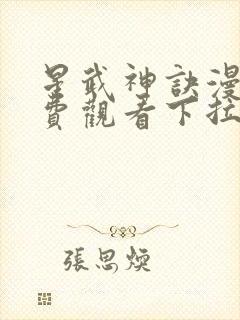 星武神訣漫
費觀看下拉
張思煐